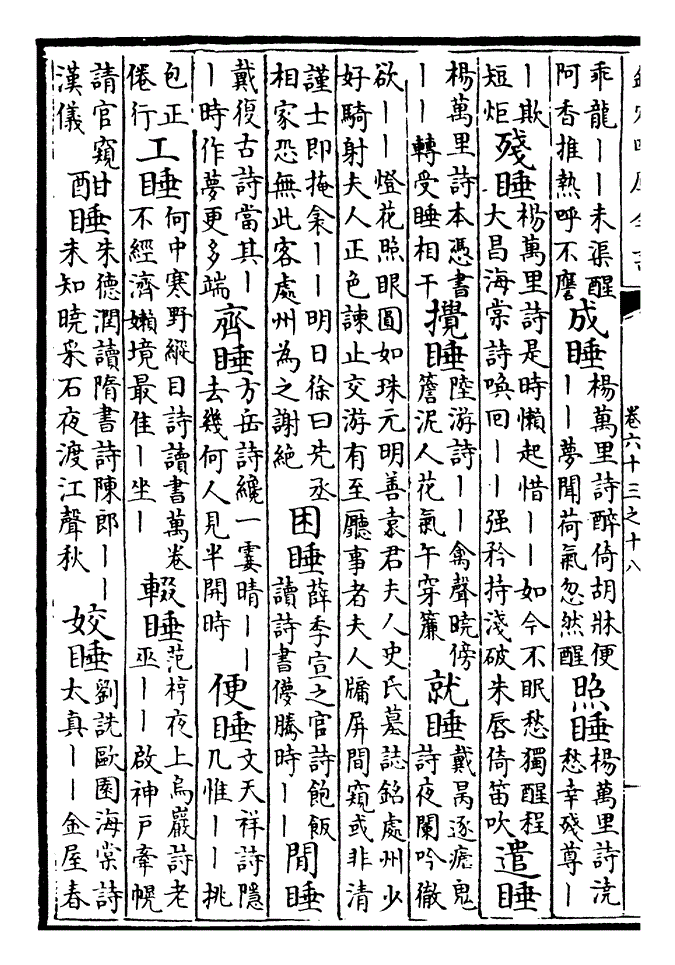 卷六十三之十八
乖龍——未渠醒
阿香推熱呼不譍
成睡
楊萬里詩醉倚胡牀便
——夢聞荷氣忽然醒
照睡
楊萬里詩澆
愁幸殘尊—
—欺
短炬
殘睡
楊萬里詩是時懶起惜——如今不眠愁獨醒程
大昌海棠詩喚回——强矜持淺破朱唇倚笛吹
遣睡
楊萬里詩本憑書
——轉受睡相干
攪睡
陸游詩——禽聲曉傍
簷泥人花氣午穿簾
就睡
戴昺逐瘧鬼
詩夜闌吟徹
欲——燈花照眼圓如珠元明善袁君夫人史氏墓誌銘處州少
好騎射夫人正色諫止交游有至廳事者夫人牖屏間窺或非清
謹士即掩衾——明日徐曰先丞
相家恐無此客處州為之謝絶
困睡
薛季宣之官詩飽飯
讀詩書儚騰時——
閒睡
戴復古詩當其—
—時作夢更多端
齊睡
方岳詩纔一霎晴——
去幾何人見半開時
便睡
文天祥詩隱
几惟——挑
包正
倦行
工睡
何中寒野縱目詩讀書萬卷
不經濟嬾境最佳—坐—
輟睡
范梈夜上烏巖詩老
巫——啟神戸牽幌
請官窺
漢儀
酣睡
朱德潤讀隋書詩陳郎——
未知曉采石夜渡江聲秋
姣睡
劉詵歐園海棠詩
太真——金屋春